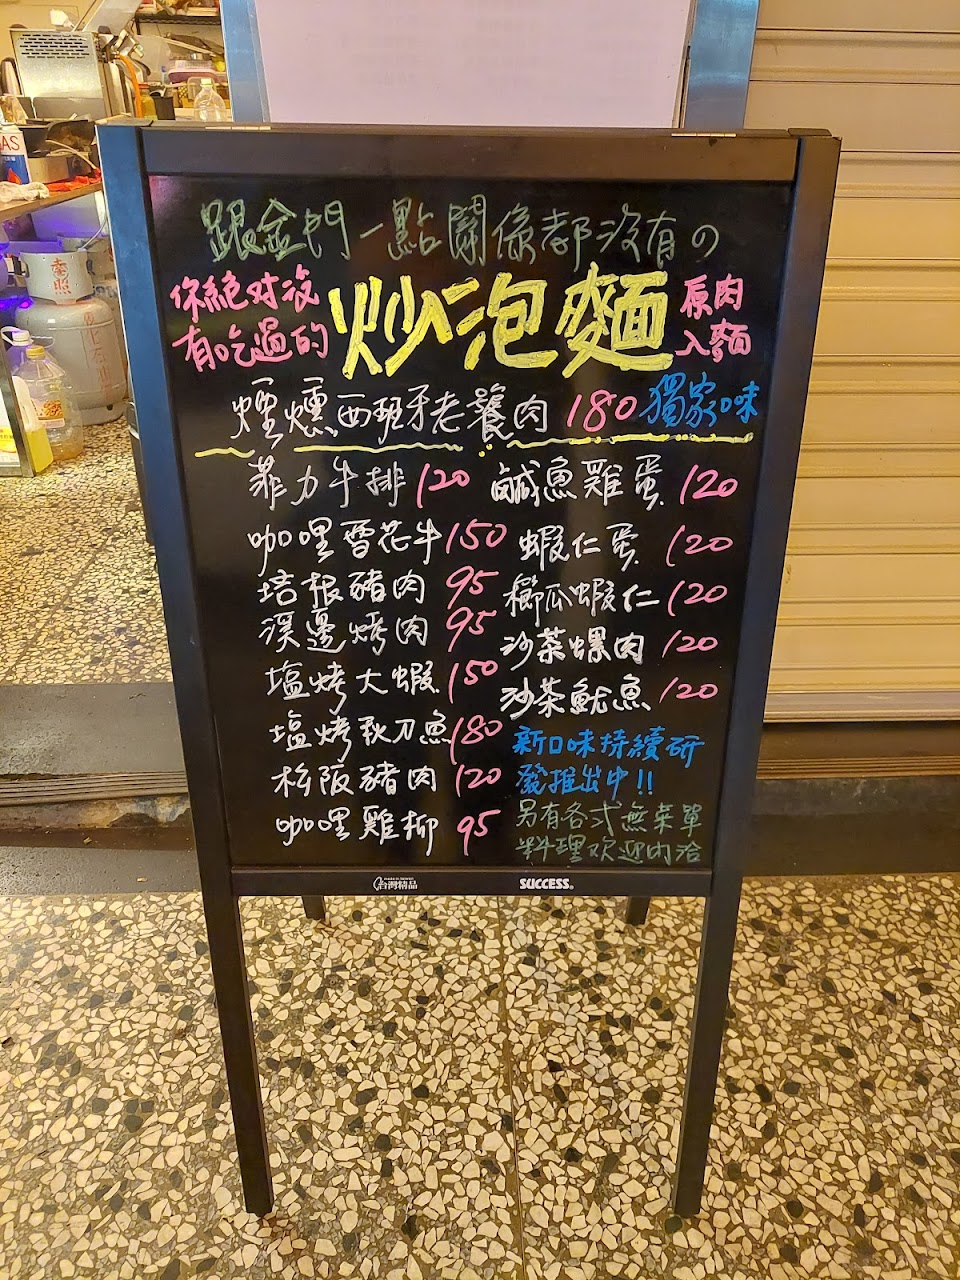 跟金門一點關係都沒有の
你絕对沒
有吃過的
炒泡麵
原肉
入麵
煙燻西班牙老饕肉 180 獨家口味
菲力牛排 120
咖哩雪花牛 150
培根豬肉 95
溪邊烤肉 95
塩烤大蝦 150
塩烤秋刀魚 180
松阪豬肉 120
咖哩雞柳 95
鹹魚雞蛋 120
蝦仁蛋 120
櫛瓜蝦仁 120
沙茶螺肉 120
沙茶魷魚 120
新口味持續研
發推出中!!
另有各式無菜單
料理欢迎内洽
台灣精品
SUCCESS